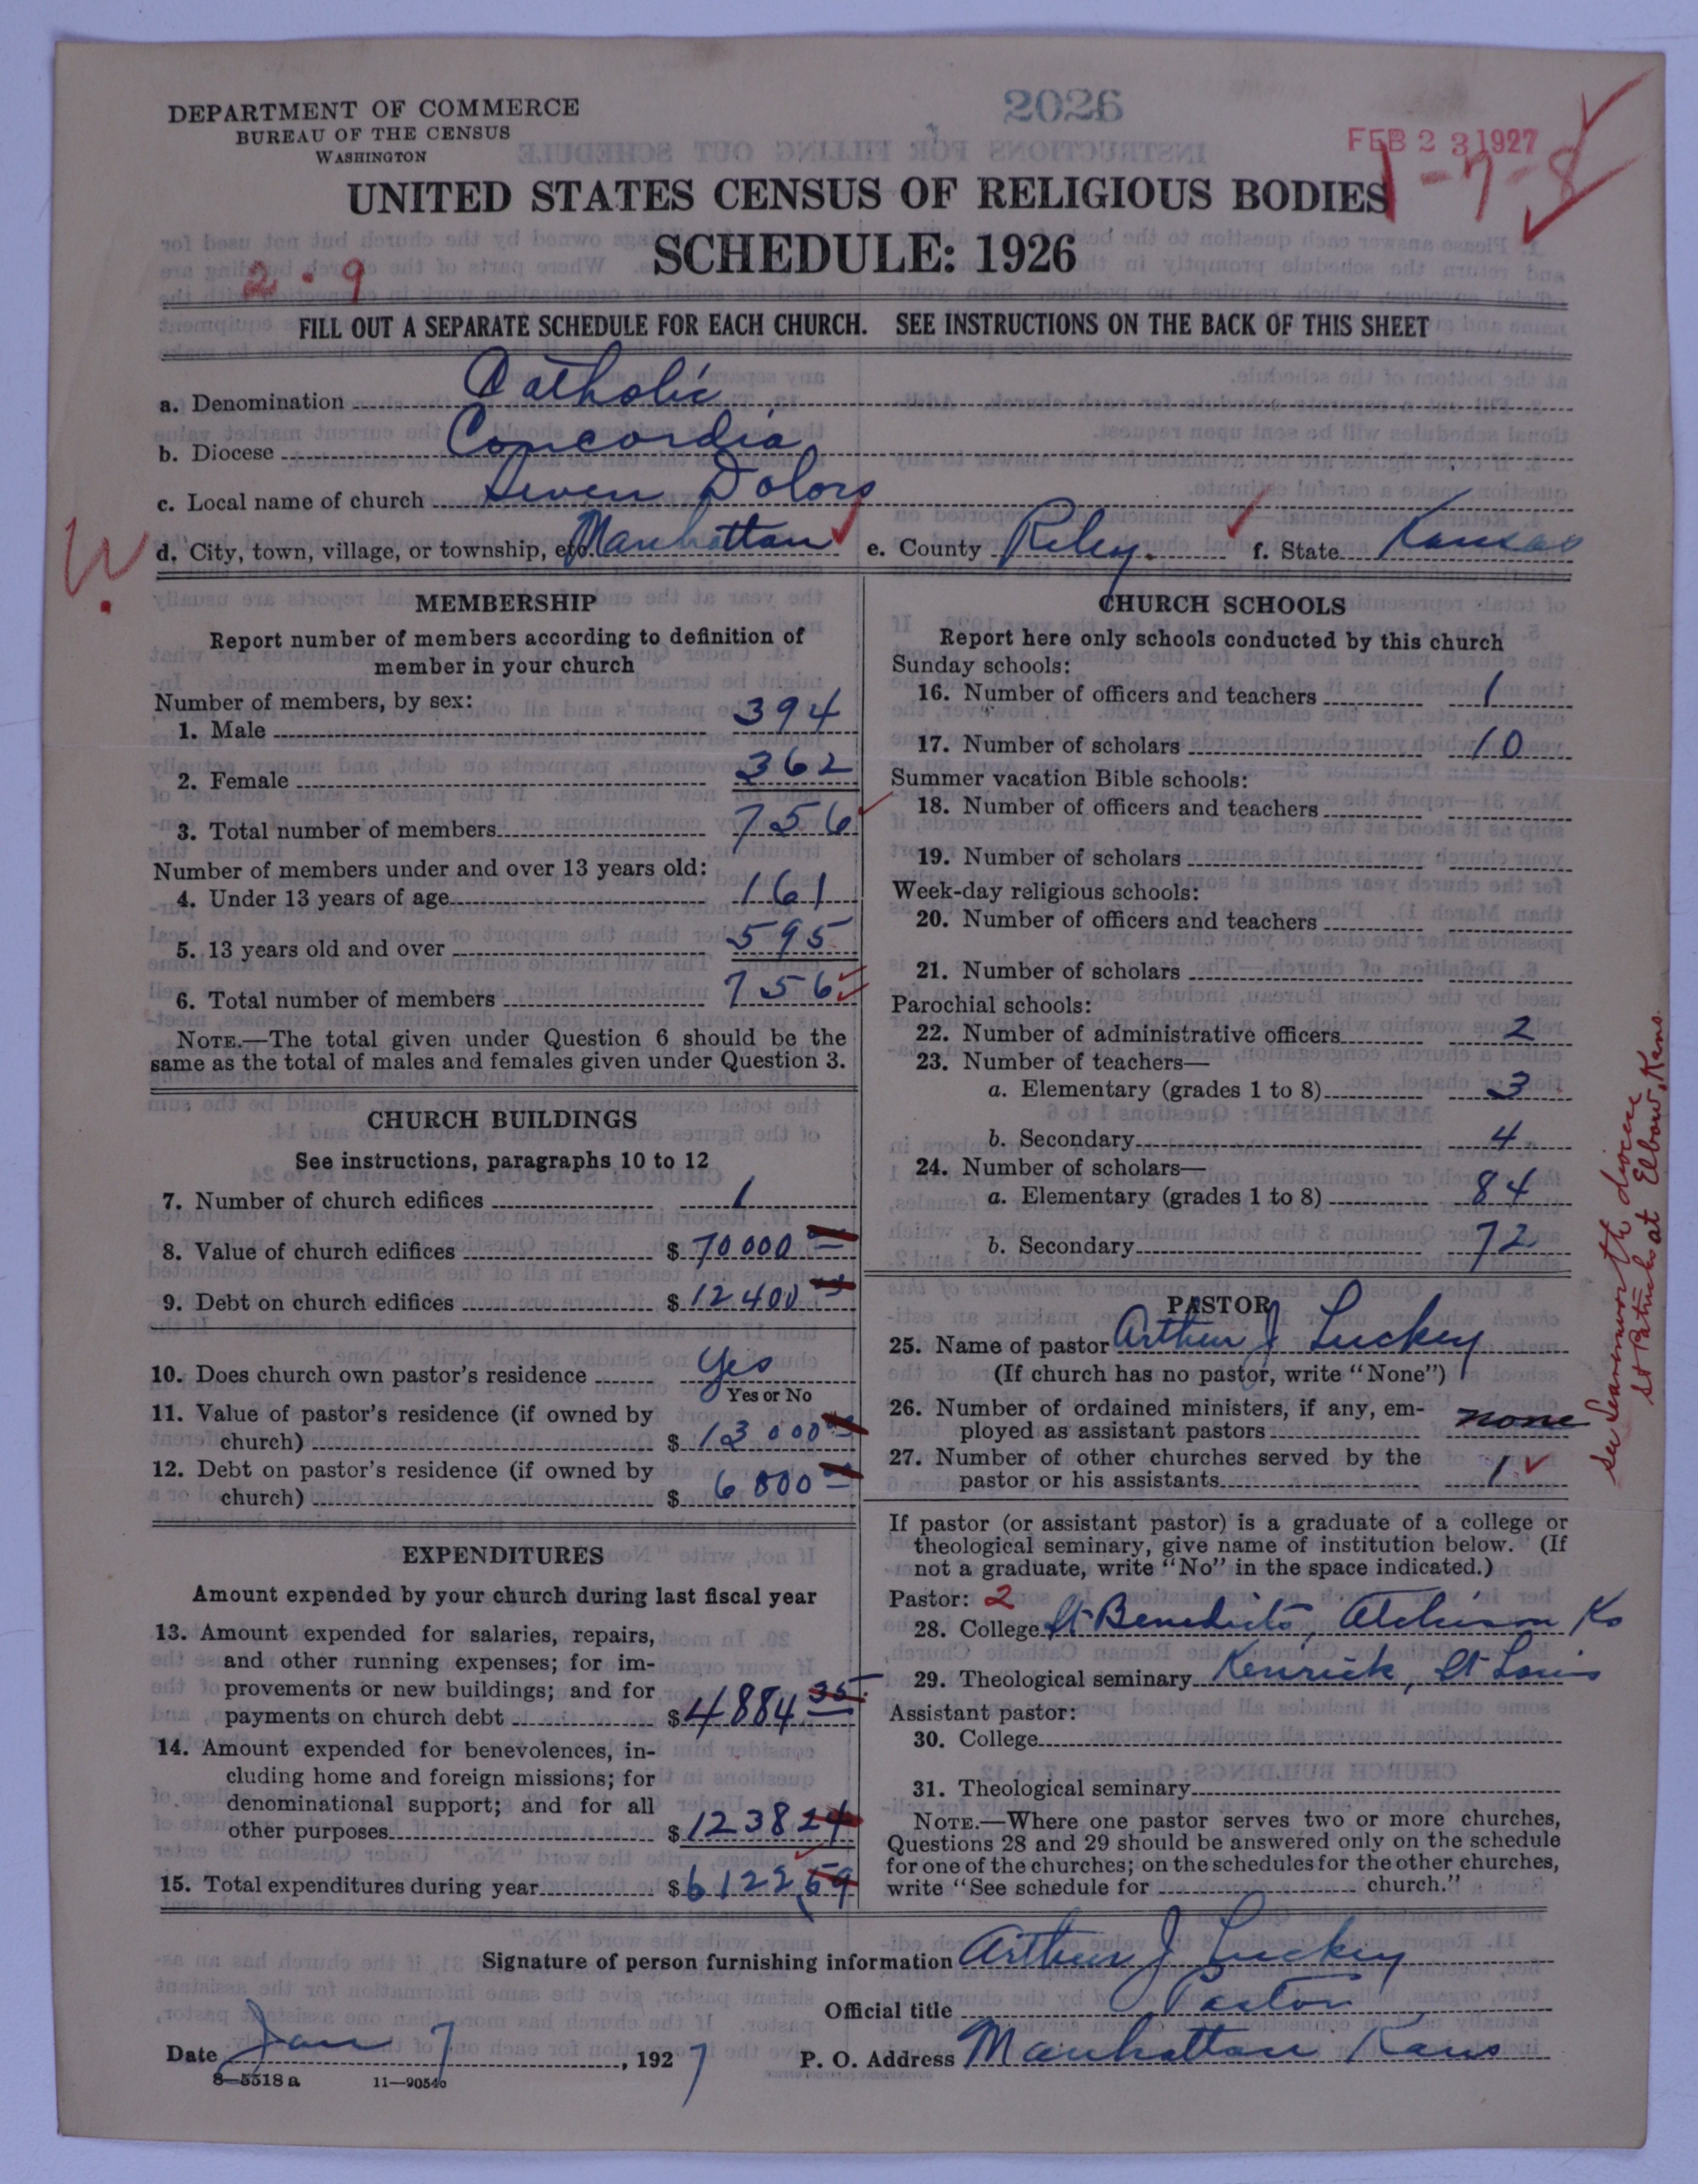 DEPARTMENT OF COMMERCE
BUREAU OF THE CENSUS
WASHINGTON
2026
FEB 23 1927
1-7-8
UNITED STATES CENSUS OF RELIGIOUS BODIES
SCHEDULE: 1926
2 · 9
FILL OUT A SEPARATE SCHEDULE FOR EACH CHURCH. SEE INSTRUCTIONS ON THE BACK OF THIS SHEET
a. Denomination Catholic
b. Diocese Concordia
c. Local name of church Seven Dolors
d. City, town, village, or township, etc. Manhattan e. County Riley. f. State Kansas
MEMBERSHIP
Report number of members according to definition of
member in your church
Number of members, by sex:
1. Male 394
2. Female 362
3. Total number of members 756
Number of members under and over 13 years old:
4. Under 13 years of age 161
5. 13 years old and over 595
6. Total number of members 756
NOTE.—The total given under Question 6 should be the
same as the total of males and females given under Question 3.
CHURCH BUILDINGS
See instructions, paragraphs 10 to 12
7. Number of church edifices 1
8. Value of church edifices $ 70000
9. Debt on church edifices $ 12400
10. Does church own pastor's residence Yes
Yes or No
11. Value of pastor's residence (if owned by
church) $ 13000
12. Debt on pastor's residence (if owned by
church) $ 6800
EXPENDITURES
Amount expended by your church during last fiscal year
13. Amount expended for salaries, repairs,
and other running expenses; for im-
provements or new buildings; and for
payments on church debt $ 4884 35
14. Amount expended for benevolences, in-
cluding home and foreign missions; for
denominational support; and for all
other purposes $ 1238 24
15. Total expenditures during year $ 6122 59
CHURCH SCHOOLS
Report here only schools conducted by this church
Sunday schools:
16. Number of officers and teachers 1
17. Number of scholars 10
Summer vacation Bible schools:
18. Number of officers and teachers
19. Number of scholars
Week-day religious schools:
20. Number of officers and teachers
21. Number of scholars
Parochial schools:
22. Number of administrative officers 2
23. Number of teachers—
a. Elementary (grades 1 to 8) 3
b. Secondary 4
24. Number of scholars—
a. Elementary (grades 1 to 8) 84
b. Secondary 72
PASTOR
25. Name of pastor Arthur J Luckey
(If church has no pastor, write "None")
26. Number of ordained ministers, if any, em-
ployed as assistant pastors none
27. Number of other churches served by the
pastor or his assistants 1
If pastor (or assistant pastor) is a graduate of a college or
theological seminary, give name of institution below. (If
not a graduate, write "No" in the space indicated.)
Pastor: 2
28. College St Benedicts, Atchison Ks
29. Theological seminary Kenrick, St Louis
Assistant pastor:
30. College
31. Theological seminary
NOTE.—Where one pastor serves two or more churches,
Questions 28 and 29 should be answered only on the schedule
for one of the churches; on the schedules for the other churches,
write "See schedule for church."
See Leavenworth diocese
St Patricks at Elbow, Kans.
Signature of person furnishing information Arthur J Luckey
Official title Pastor
Date Jan 7, 1927 P. O. Address Manhattan Kans
8—5518a 11—9054b